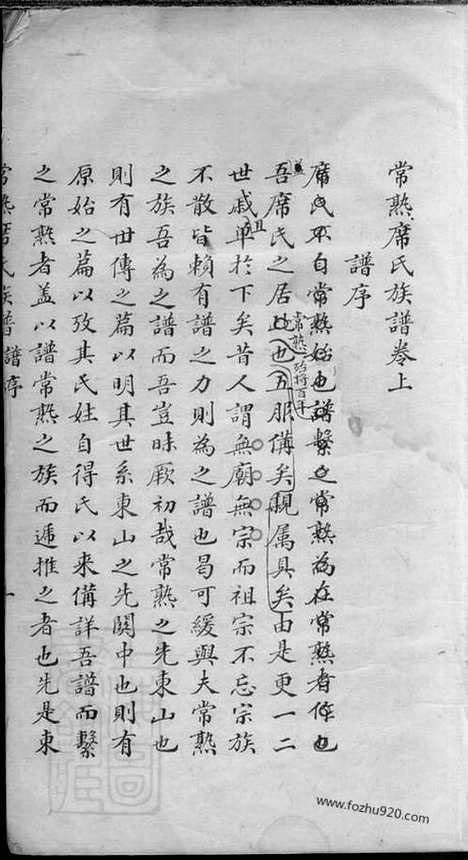 常熟席氏族譜卷上
譜序
席氏不自常熟始也譜繫之常熟為在常熟者作也
蓋吾席氏之居此也五服備矣親属具矣由是更一二
常熟殆将百年
世戚單於下矣昔人謂無廟無宗而祖宗不忘宗族
且
不散皆賴有譜之力則為之譜也曷可緩與夫常熟
之族吾為之譜而吾豈昧厥初哉常熟之先東山也
則有世傳之篇以明其世系東山之先関中也則有
原始之篇以攷其氏姓自得氏以来備詳吾譜而繫
之常熟者盖以譜常熟之族而遞推之者也先是東
常熟席氏族譜譜序
一
www.fozhu920.com